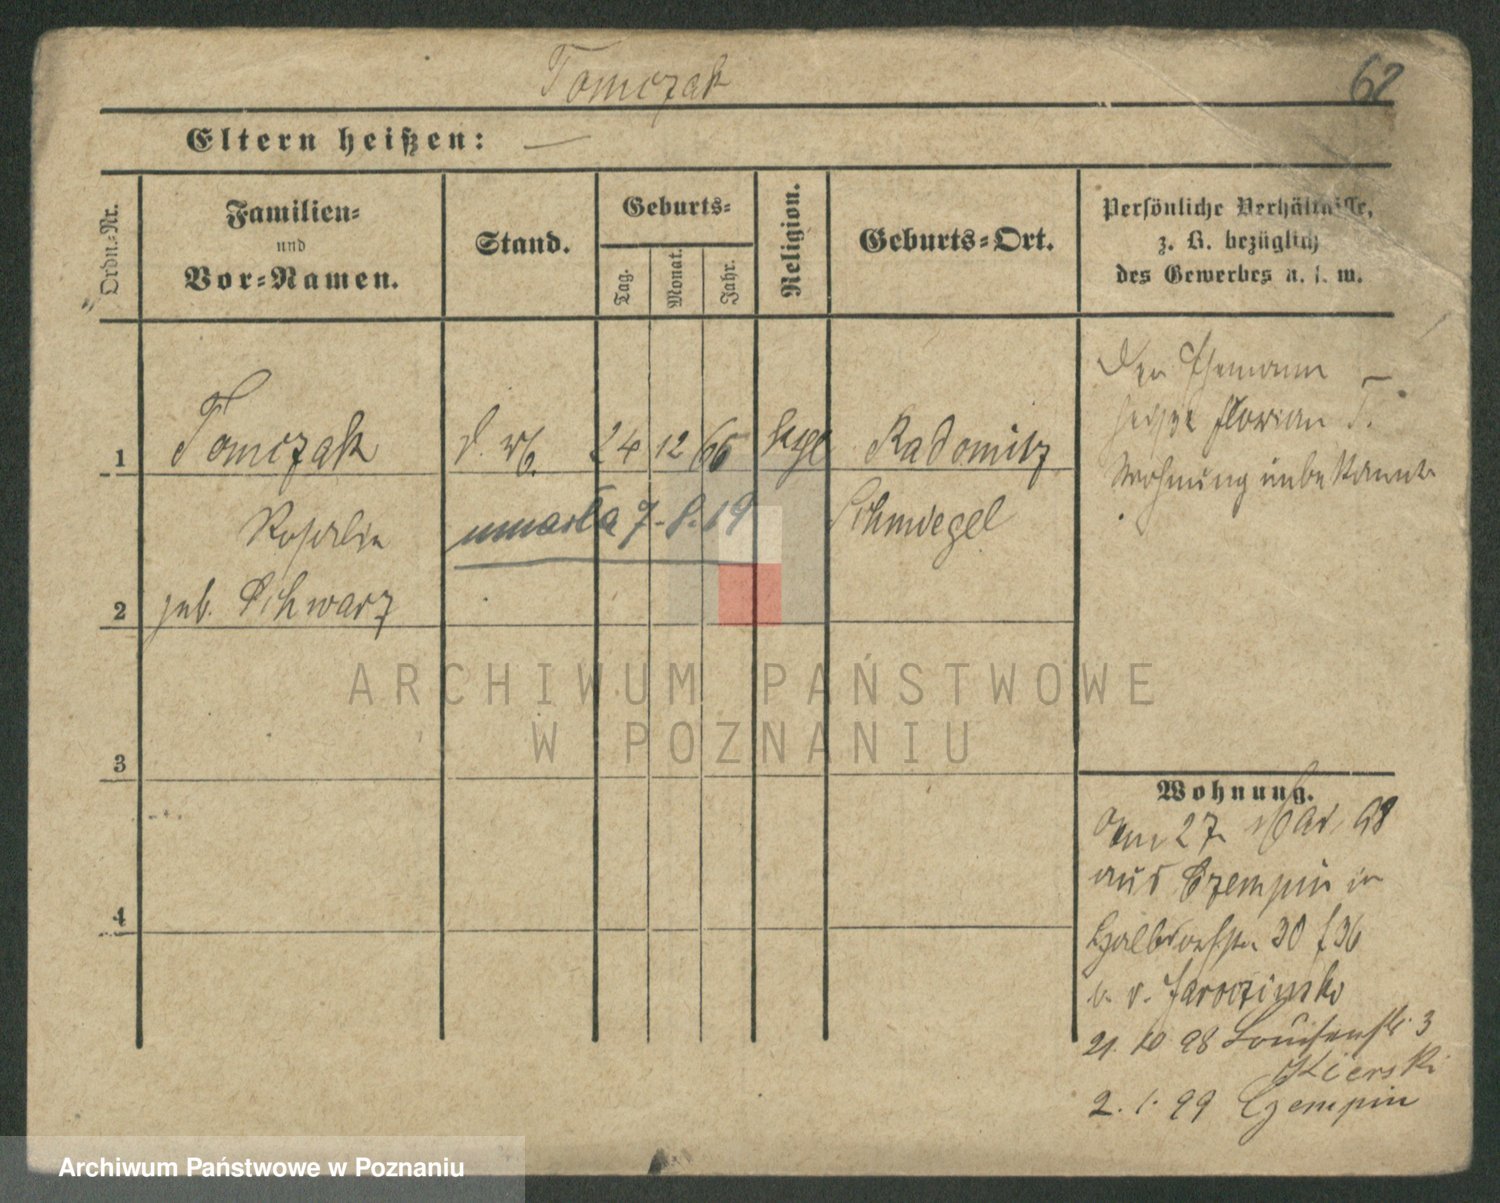 Tomczak
62
Eltern heißen: —
Ordn.-Nr.
Familien-
und
Vor-Namen.
Stand.
Geburts-
Tag.
Monat.
Jahr.
Religion.
Geburts-Ort.
Persönliche Verhältnisse,
z. B. bezüglich
des Gewerbes u. s. w.
1
Tomczak
24 12 66
Radomitz
Der Ehemann
heißt Florian T.
Wohnung unbekannt
Rosalie
umarła 7.8.19
Schmiegel
2
geb. Schwarz
3
4
Wohnung.
am 27. Mai 98
aus Czempin in
Halbdorfstr. 30
b. v. Jaroczinski
21. 10 98 Louisenstr. 3
Kierski
2. 1. 99 Czempin
ARCHIWUM PAŃSTWOWE
W POZNANIU
Archiwum Państwowe w Poznaniu